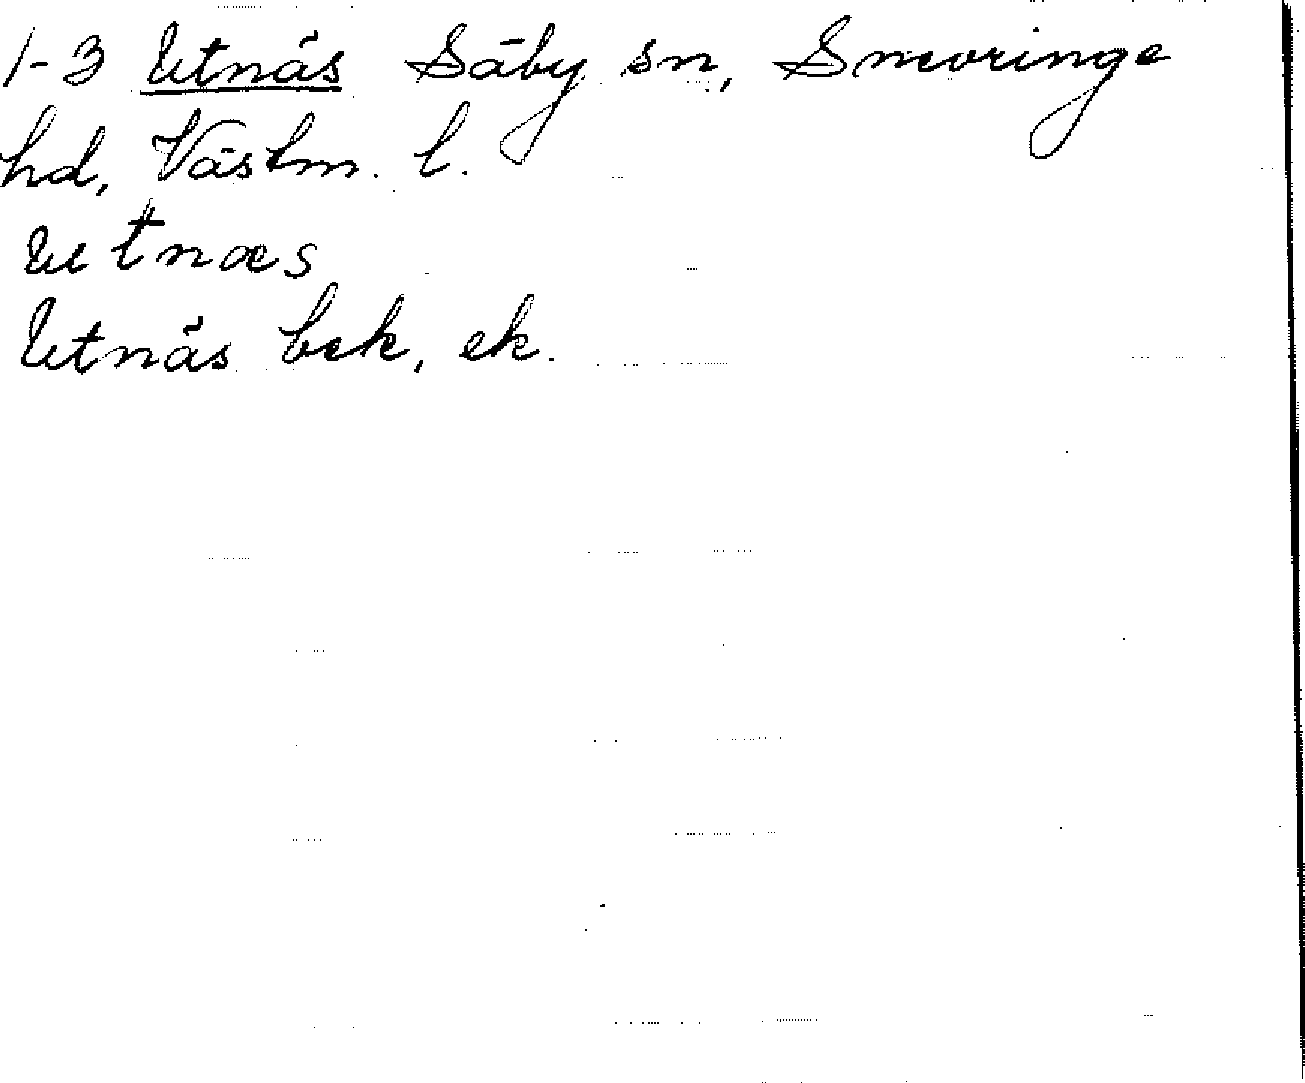 1-3 Utnäs Säby sn, Snevringe
hd, Västm. l.
utnæs
Utnäs bek, ek.